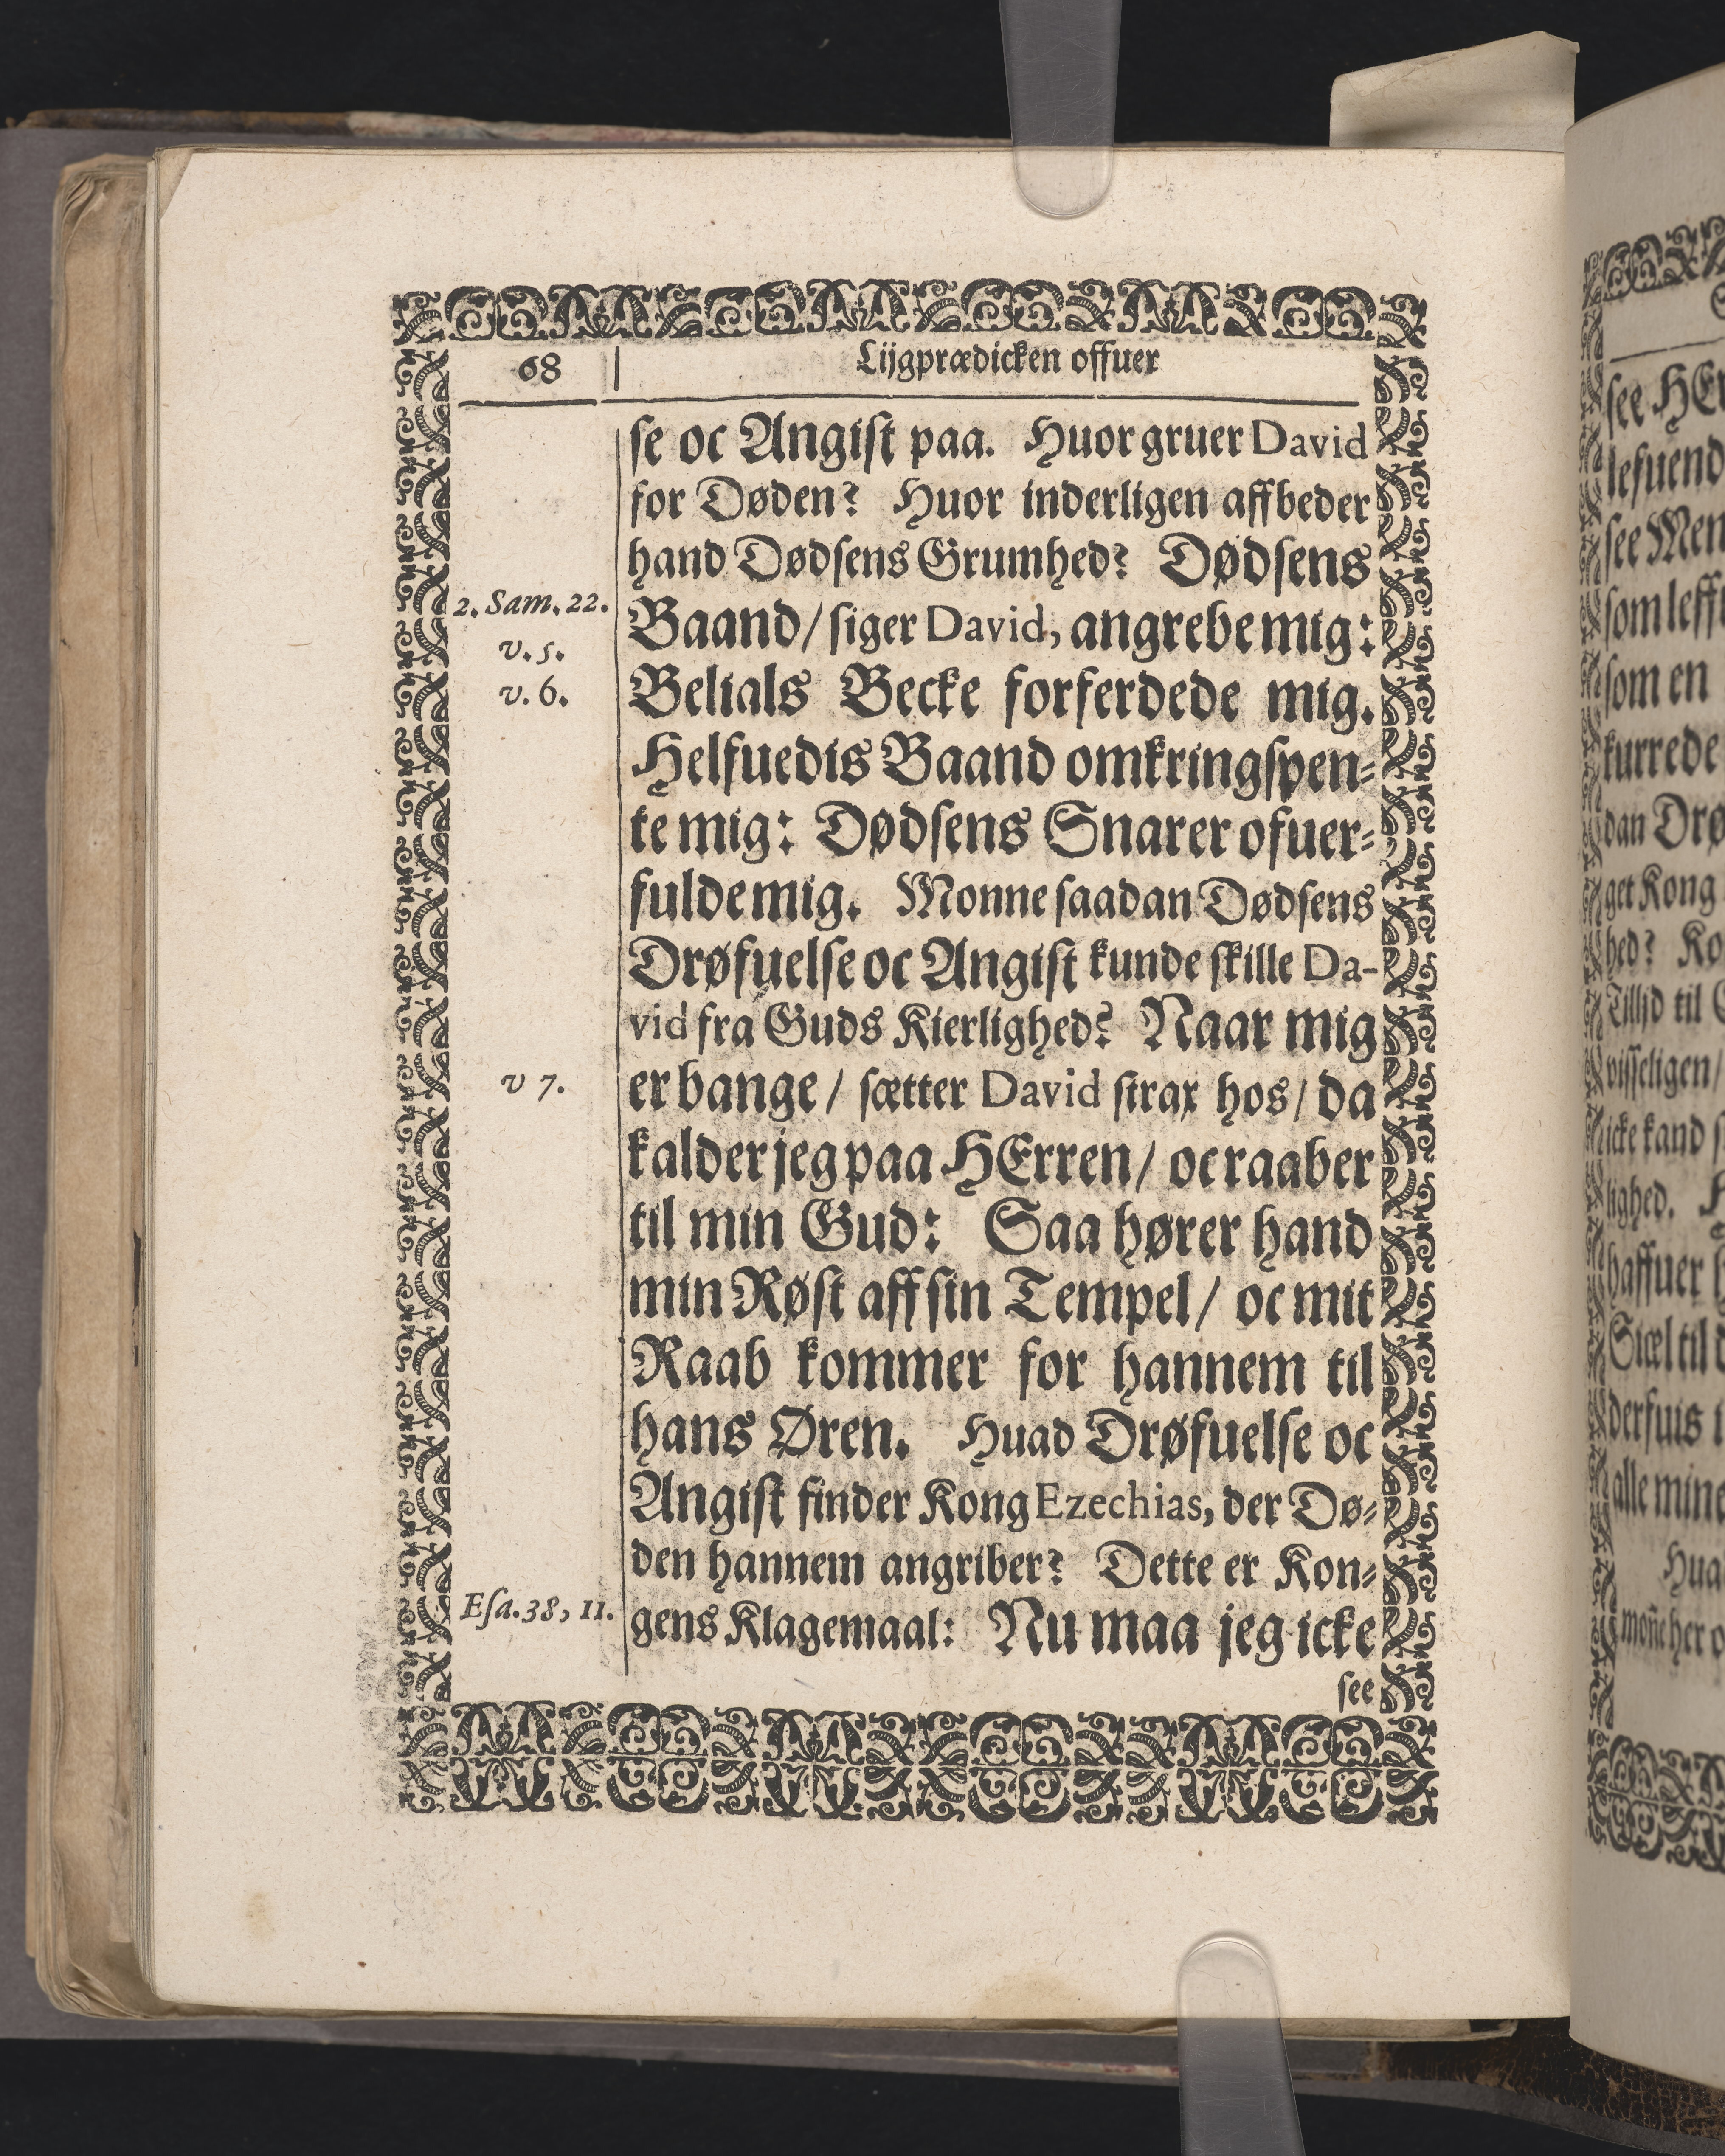 68
Lijgprædicken offuer
se oc Angist paa. Huor gruer David
for Døden? Huor inderligen affbeder
hand Dødsens Grumhed? Dødsens
2. Sam. 22.
Baand / siger David, angrebe mig:
v. 5.
v. 6.
Belials Becke forferdede mig.
Helfuedis Baand omkringspen-
te mig: Dødsens Snarer ofuer-
fulde mig. Monne saadan Dødsens
Drøfuelse oc Angist kunde skille Da-
vid fra Guds Kierlighed? Naar mig
v 7.
er bange / sætter David strax hos / da
kalder jeg paa HErren / oc raaber
til min Gud: Saa hører hand
min Røst aff sin Tempel / oc mit
Raab kommer for hannem til
hans Øren. Huad Drøfuelse oc
Angist finder Kong Ezechias, der Dø-
den hannem angriber? Dette er Kon-
Esa. 38, 11.
gens Klagemaal: Nu maa jeg icke
see
see
lefuend
see Men
som
som en
kurrede
dan
get Kong
hed?
Tillid til
visseligen /
icke kand
lighed.
haffuer
Siæl til
derfuis
alle mine